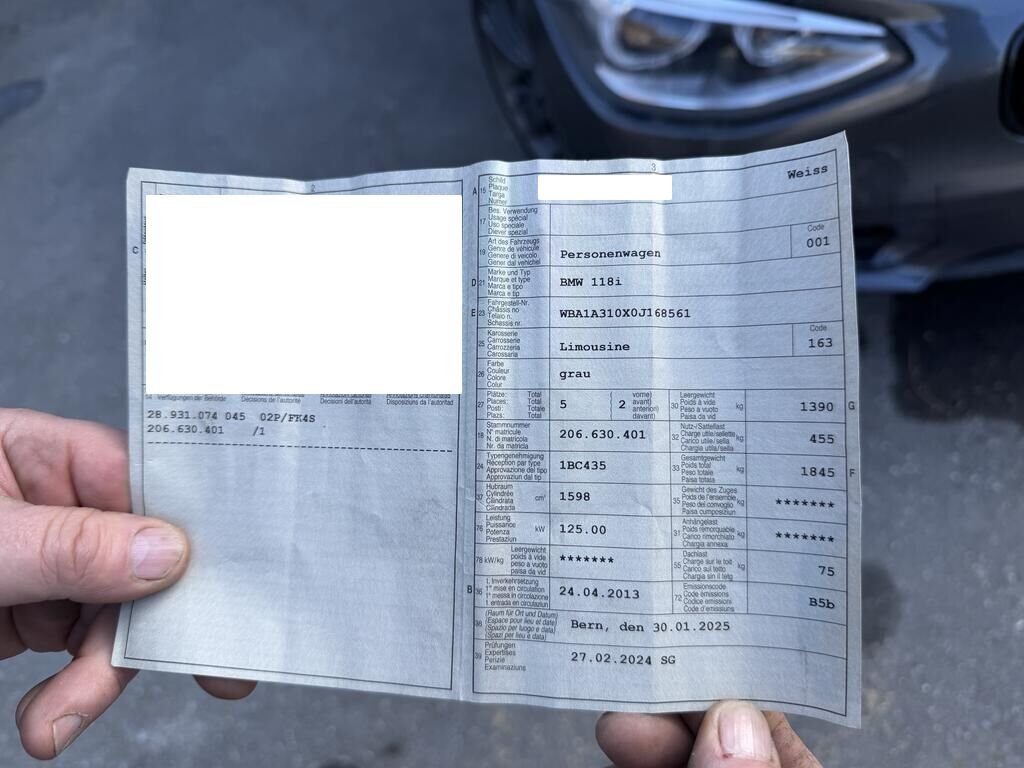 2
C
14 Verfügungen der Behörde Décisions de l'autorité Decisioni dell'autorità Disposiziuns da l'autoritad
28.931.074 045 02P/FK4S
206.630.401 /1
3
A 15 Schild
Plaque
Targa
Numer
Weiss
17 Bes. Verwendung
Usage spécial
Uso speciale
Diever spezial
19 Art des Fahrzeugs
Genre de véhicule
Genere di veicolo
Gener dal vehichel
Personenwagen
Code
001
D 21 Marke und Typ
Marque et type
Marca e tipo
Marca e tip
BMW 118i
E 23 Fahrgestell-Nr.
Châssis no
Telaio n.
Schassis nr.
WBA1A310X0J168561
25 Karosserie
Carrosserie
Carrozzeria
Carossaria
Limousine
Code
163
26 Farbe
Couleur
Colore
Colur
grau
27 Plätze: Total
Places: Total
Posti: Totale
Plazs: Total
5 ( 2 vorne)
avant)
anteriori)
davant)
30 Leergewicht
Poids à vide
Peso a vuoto
Paisa da vid
kg
1390 G
18 Stammnummer
N° matricule
N. di matricola
Nr. da matricla
206.630.401
32 Nutz-/Sattellast
Charge utile/sellette
Carico utile/sella
Chargia utila/sella
kg
455
24 Typengenehmigung
Réception par type
Approvazione del tipo
Approvaziun dal tip
1BC435
33 Gesamtgewicht
Poids total
Peso totale
Paisa totala
kg
1845 F
37 Hubraum
Cylindrée
Cilindrata
Cilindrada
cm³
1598
35 Gewicht des Zuges
Poids de l'ensemble
Peso del convoglio
Paisa cumposiziun
kg
*******
76 Leistung
Puissance
Potenza
Prestaziun
kW
125.00
31 Anhängelast
Poids remorquable
Carico rimorchiato
Chargia annexa
kg
*******
78 kW/kg Leergewicht
poids à vide
peso a vuoto
paisa da vid
*******
55 Dachlast
Charge sur le toit
Carico sul tetto
Chargia sin il tetg
kg
75
B 36 1. Inverkehrsetzung
1re mise en circulation
1a messa in circolazione
1. entrada en circulaziun
24.04.2013
72 Emissionscode
Code émissions
Codice emissioni
Code d'emissiuns
B5b
38 (Raum für Ort und Datum)
(Espace pour lieu et date)
(Spazio per luogo e data)
(Spazi per lieu e data)
Bern, den 30.01.2025
39 Prüfungen
Expertises
Perizie
Examinaziuns
27.02.2024 SG